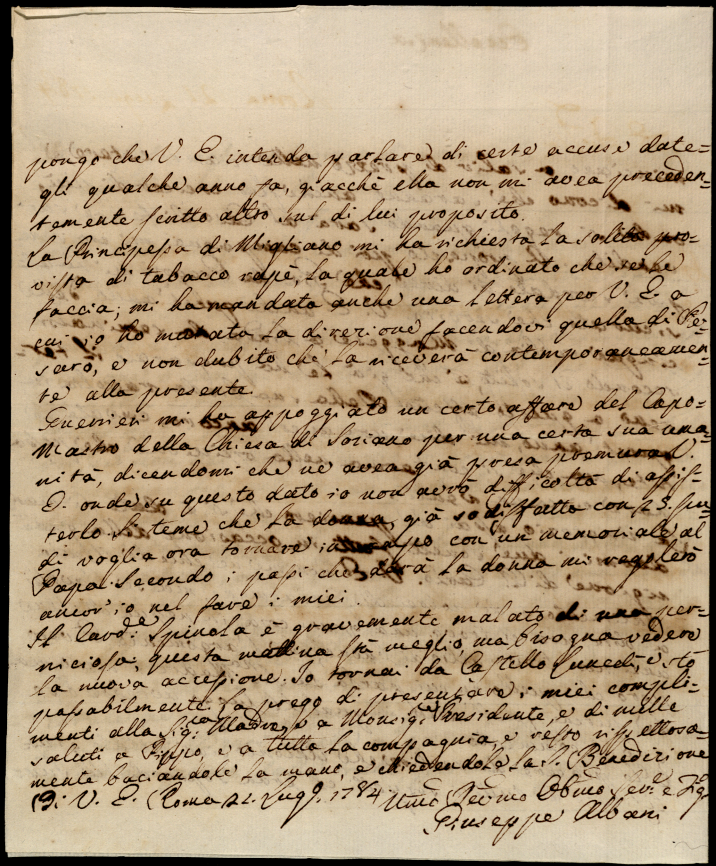 pongo che V. E. intenda parlare di certe accuse date=
gli qualche anno fa, giacchè ella non mi avea preceden=
temente scritto altro sul di lui proposito.
La Principessa di Migliano mi ha richiesta la solita prov=
vista di tabacco rapè, la quale ho ordinato che se le
faccia; mi ha mandata anche una lettera per V. E. a
cui io ho mutata la direzione facendovi quella di Pe=
saro, e non dubito che la riceverà contemporaneamen=
te alla presente.
Guerrieri mi ha appoggiato un certo affare del Capo=
Mastro della Chiesa di Soriano per una certa sua uma=
nità, dicendomi che ne avea già presa premura V.
E. onde su questo dato io non avrò difficoltà di assis=
terlo. Si teme che la donna, già sodisfatta con 25. scu=
di voglia ora tornare in campo con un memoriale al
Papa. Secondo i passi che darà la donna mi regolerò
ancor io nel fare i miei.
Il Card.e Spinola è gravemente malato di una per=
niciosa, questa mattina stà meglio, ma bisogna vedere
la nuova accessione. Io tornai da Castello Lunedì, e stò
passabilmente. La prego di presentare i miei compli=
menti alla Sig.ra Madre, e a Monsig.r Presidente, e di mille
saluti a Pippo, e a tutta la compagnia, e resto rispettosa=
mente baciandole la mano, e chiedendole la S. Benedizione
Di V. E. Roma 21. Lug.o 1784.
Umo Devmo Obmo Serv.e e Fig.o
Giuseppe Albani